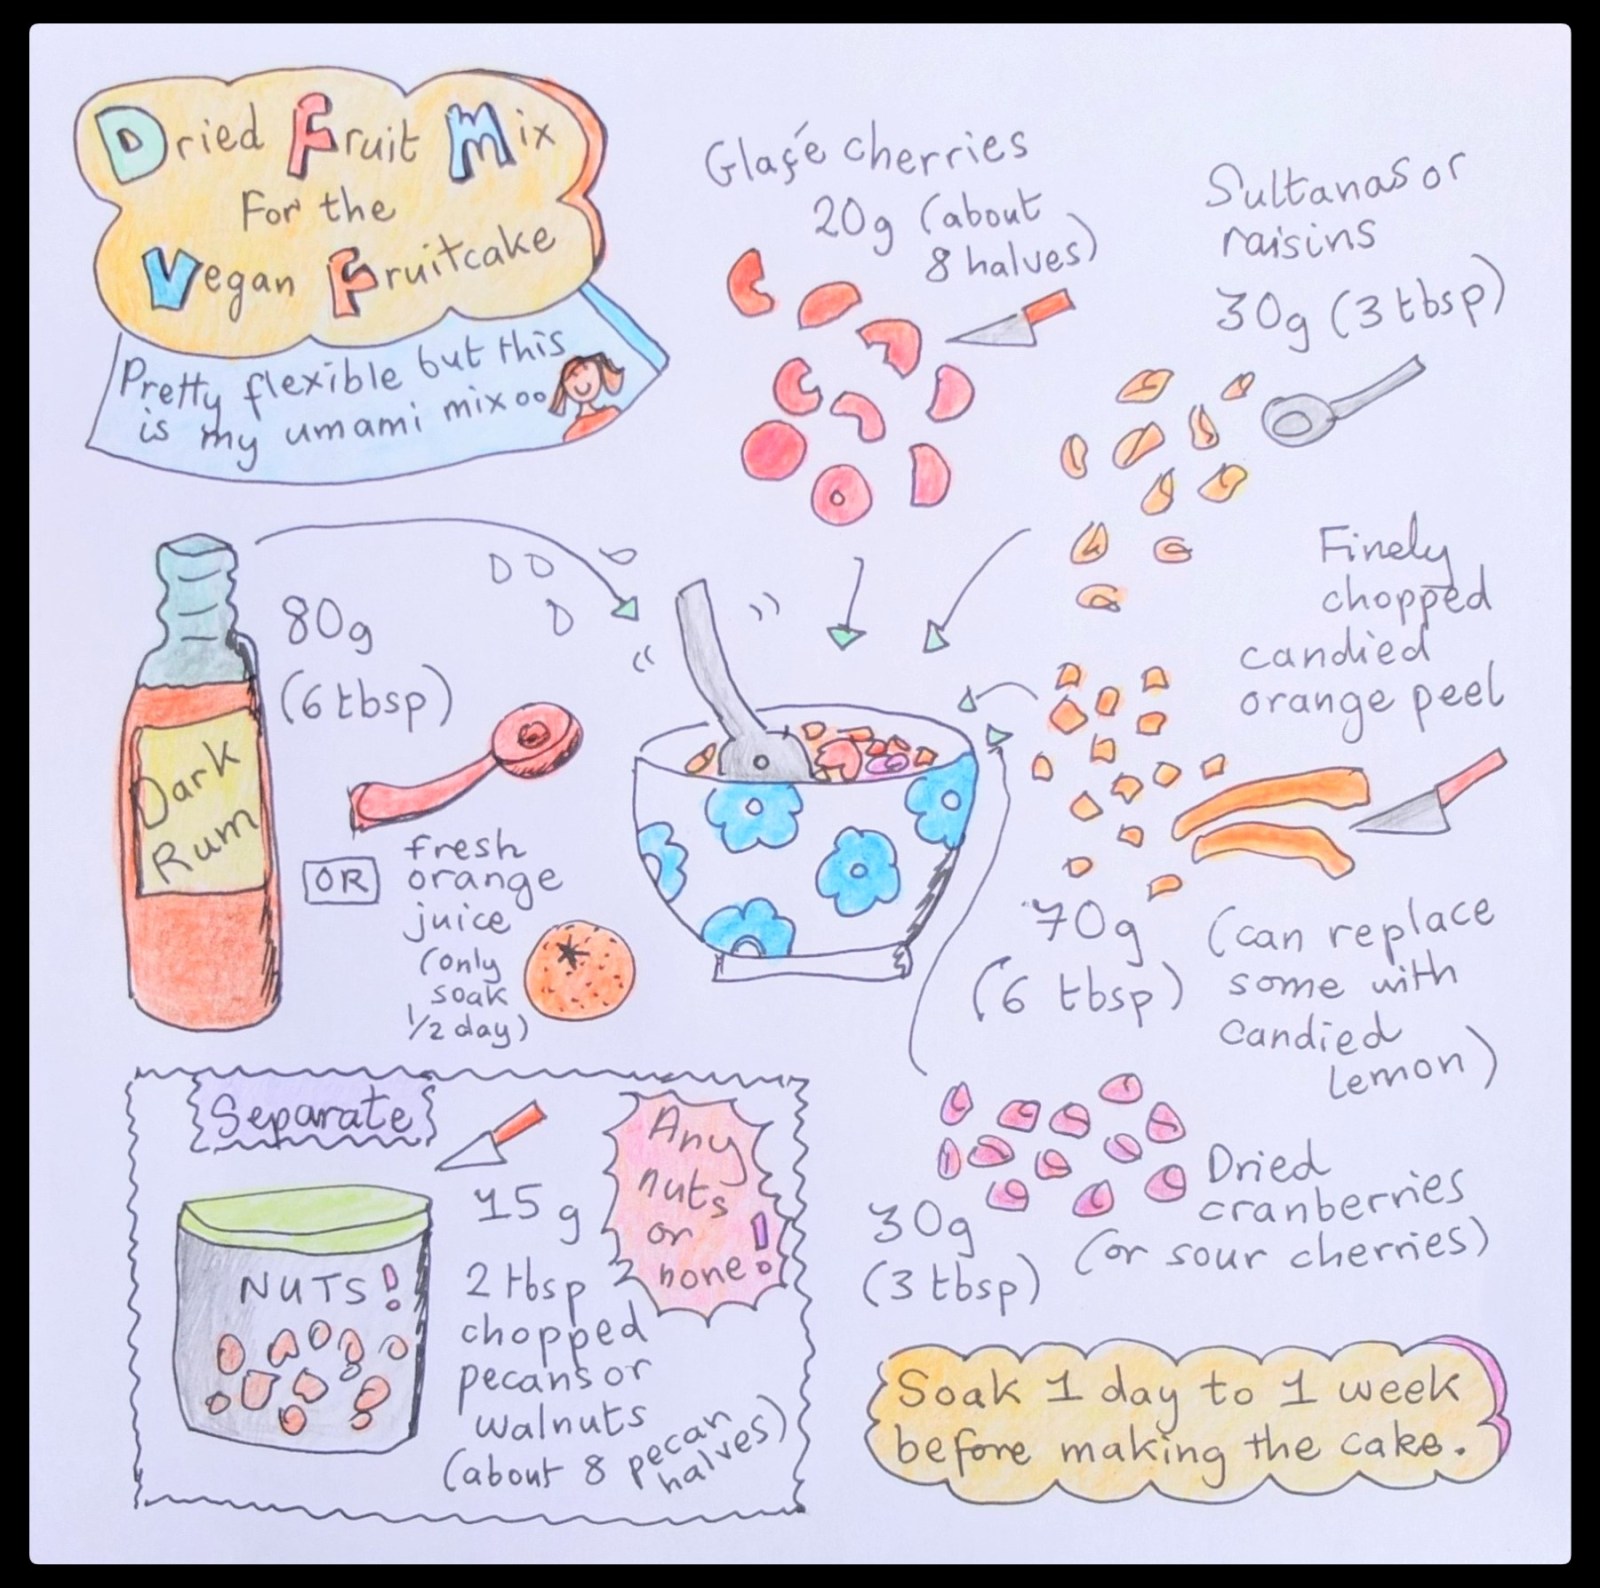 Dried Fruit Mix
For the
Vegan Fruitcake
Pretty flexible but this
is my umami mix
Glaçé cherries
20g (about
8 halves)
Sultanas or
raisins
30g (3 tbsp)
Finely
chopped
candied
orange peel
70g
(6 tbsp)
(can replace
some with
candied
lemon)
80g
(6 tbsp)
Dark
Rum
OR
fresh
orange
juice
(only
soak
1/2 day)
Separate
NUTS!
15g
2 tbsp
chopped
pecans or
walnuts
(about 8 pecan
halves)
Any
nuts
or
none!
Dried
cranberries
(or sour cherries)
30g
(3 tbsp)
Soak 1 day to 1 week
before making the cake.